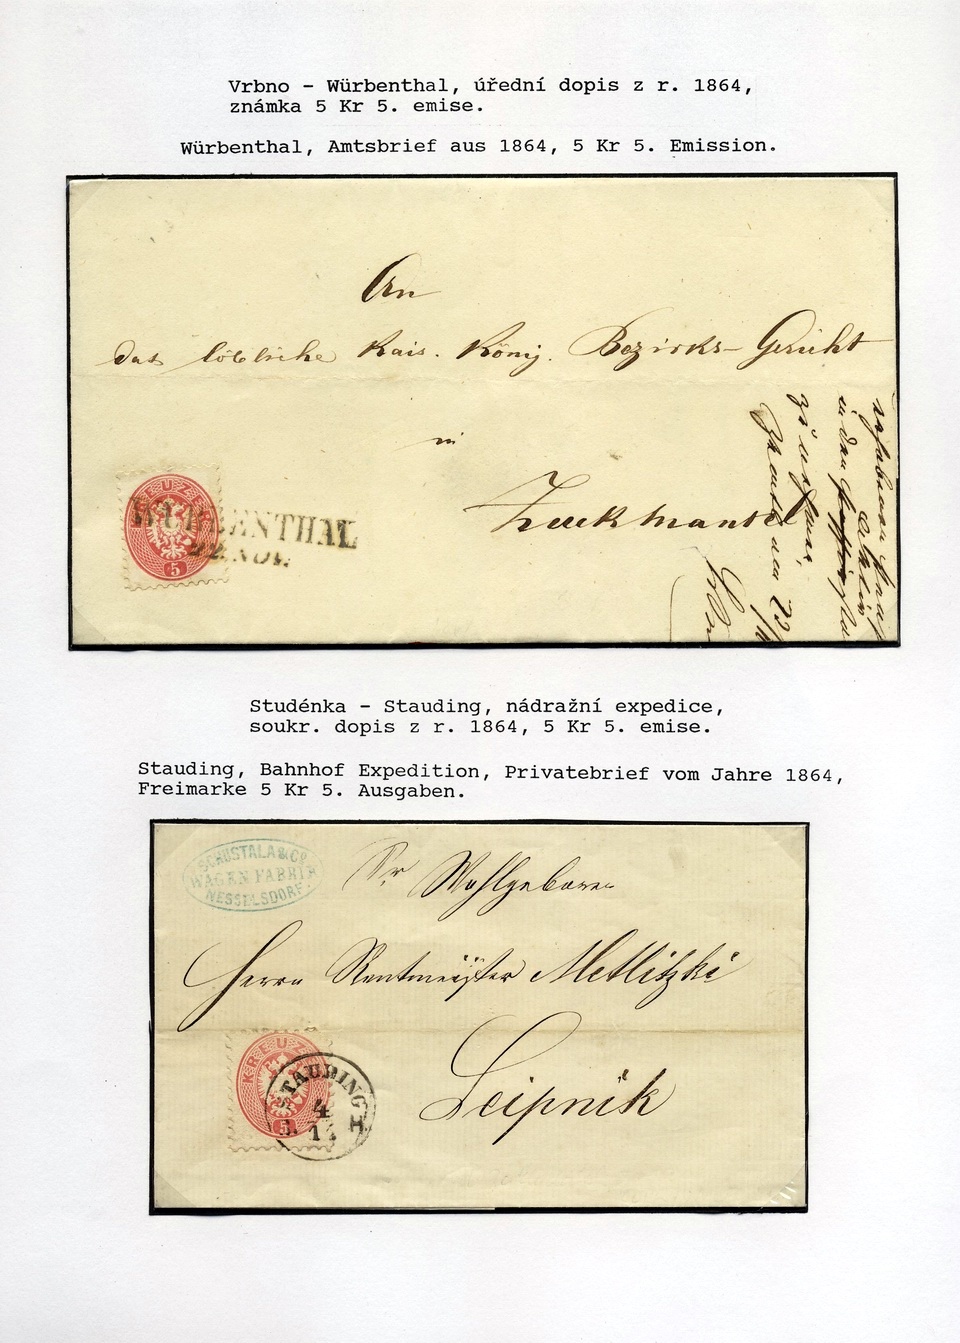 Vrbno - Würbenthal, úřední dopis z r. 1864,
známka 5 Kr 5. emise.
Würbenthal, Amtsbrief aus 1864, 5 Kr 5. Emission.
An
das löbliche Kais. König. Bezirks-Gericht
in
Zuckmantel
KREUZER
5
WÜRBENTHAL
22. NOV.
Studénka - Stauding, nádražní expedice,
soukr. dopis z r. 1864, 5 Kr 5. emise.
Stauding, Bahnhof Expedition, Privatebrief vom Jahre 1864,
Freimarke 5 Kr 5. Ausgaben.
SCHUSTALA & Co
WAGEN FABRIK
NESSELSDORF.
Sr Wohlgeboren
Herrn Rentmeister Metlitzki
Leipnik
KREUZER
5
STAUDING
4